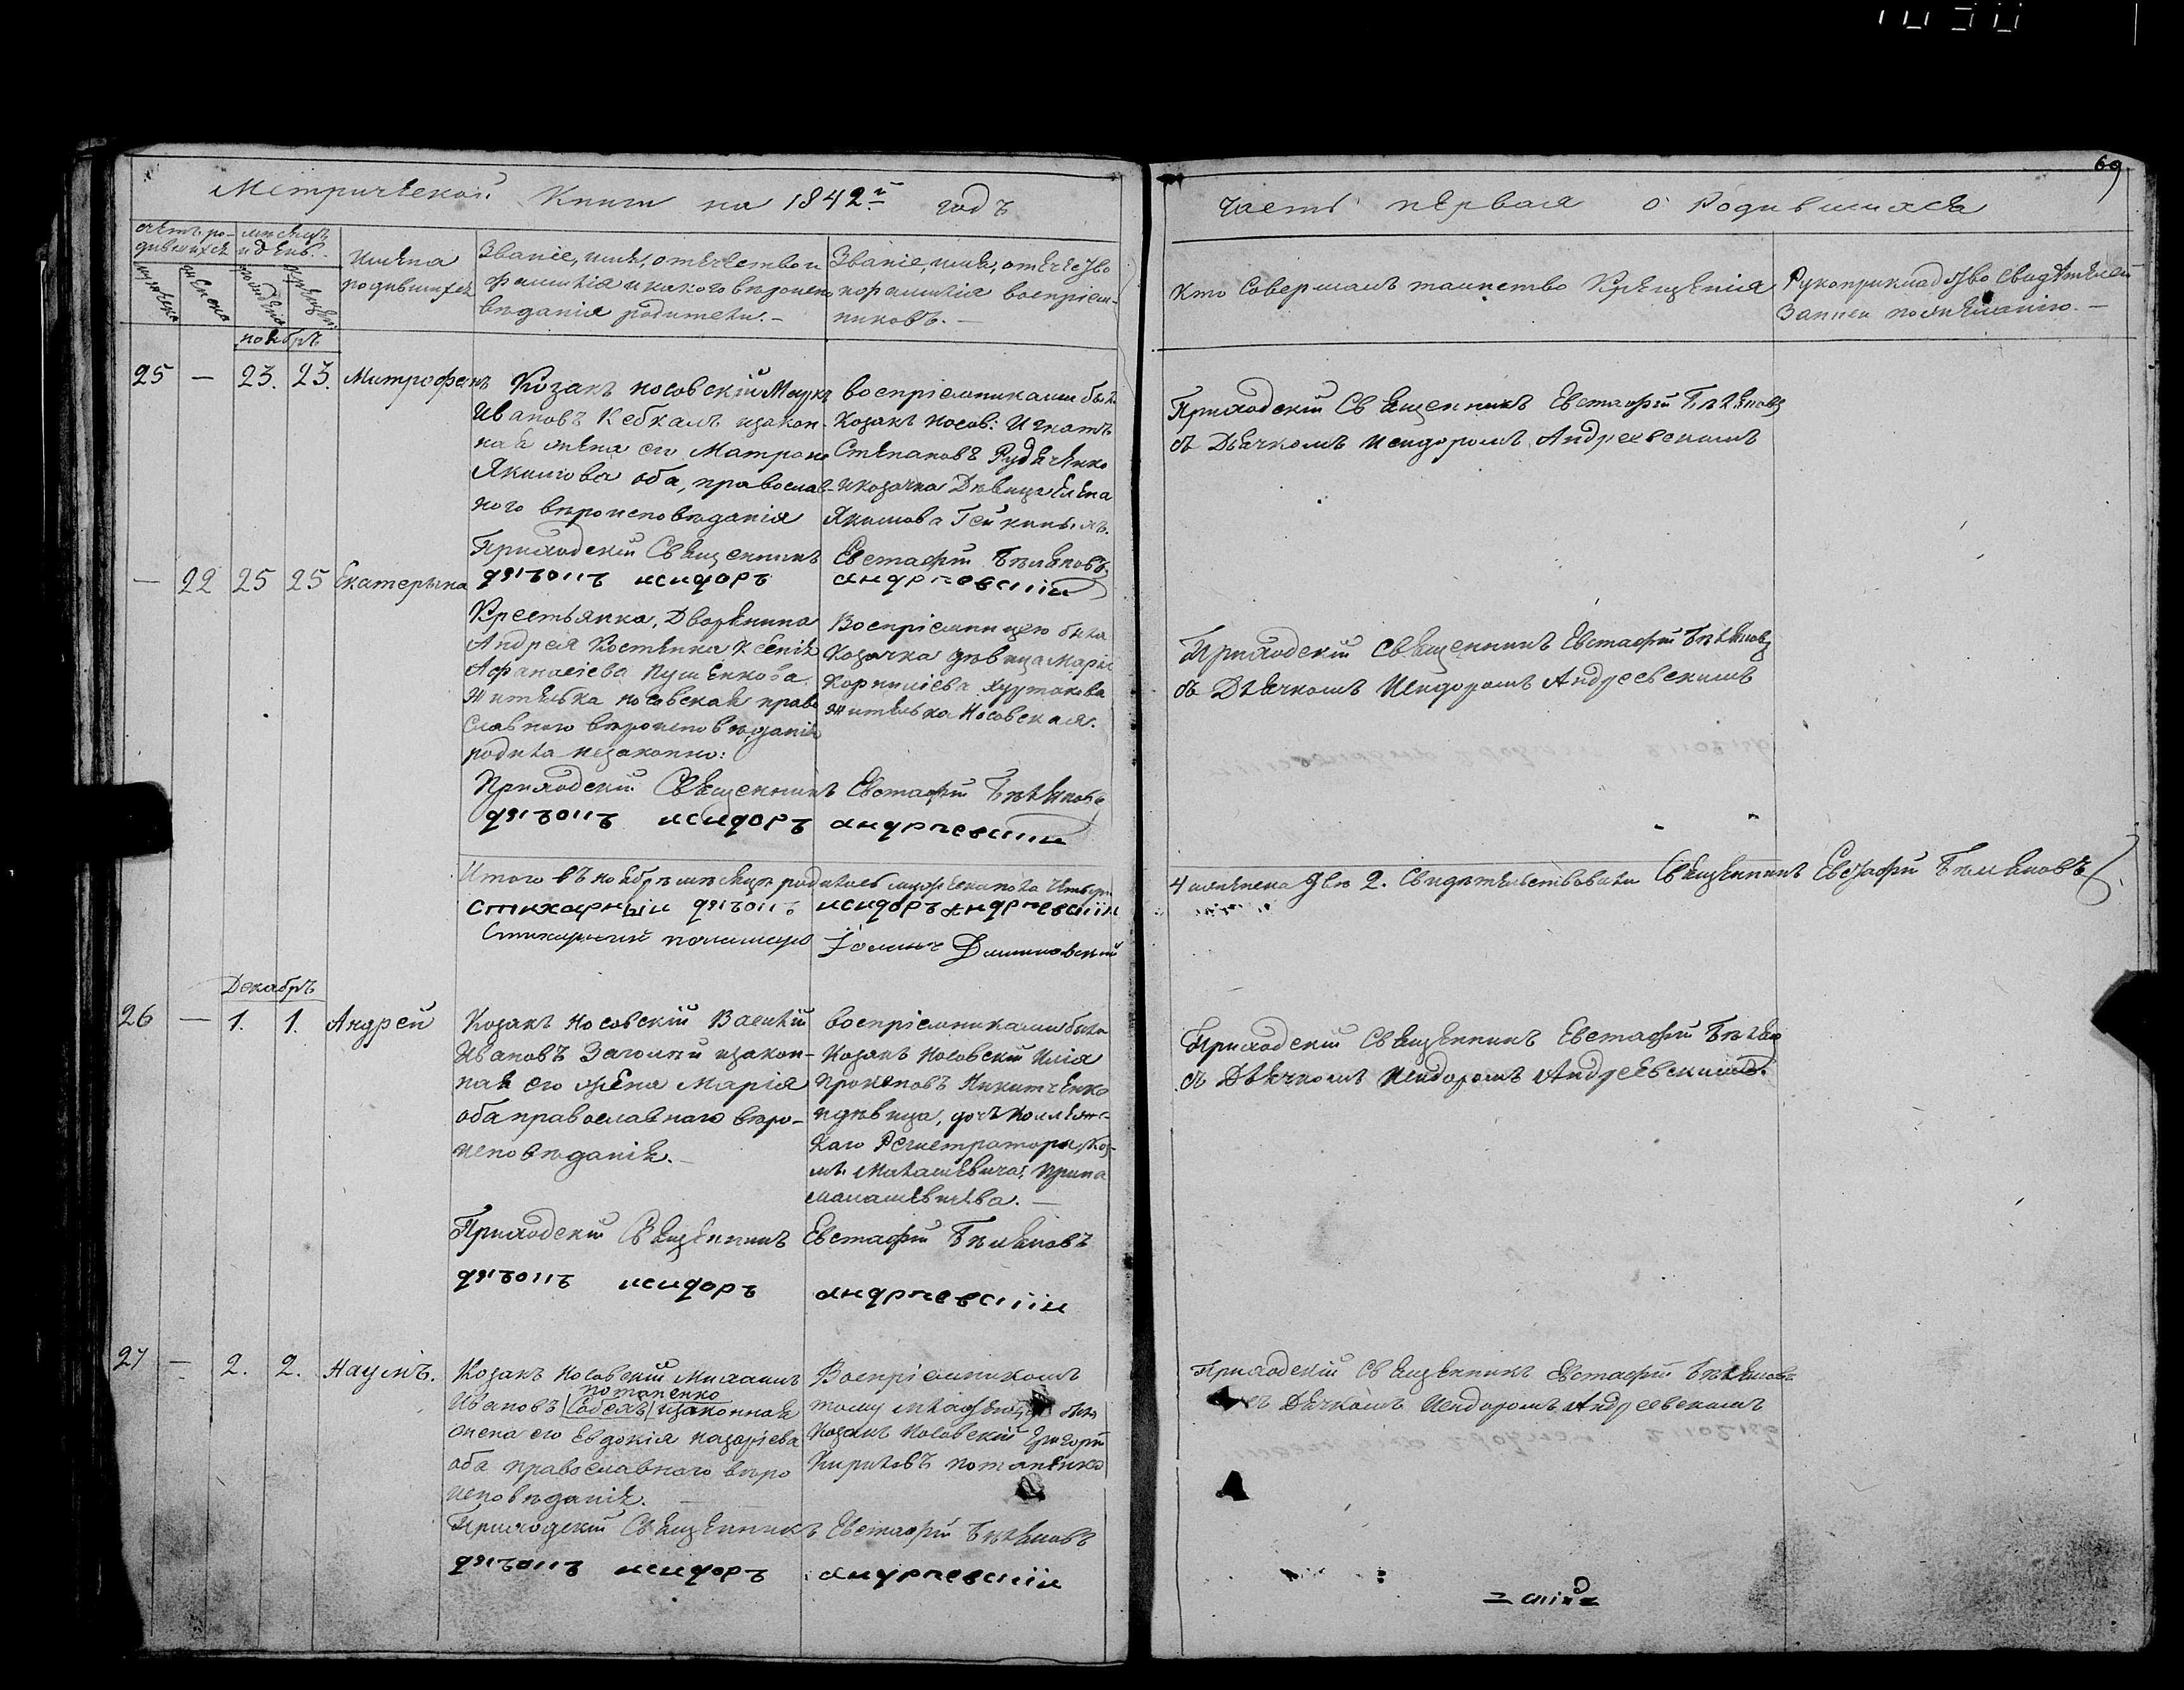 69
Метрической Книги на 1842й годъ
часть первая о Родившихся
счетъ ро-
дившихся
мужеска
женска
месяцъ
и день.
рождения
крещен:
Имена
родившихся
Званіе, имя, отечество и
фамилія и какого вероиспо
веданія родители. –
Званіе, имя, отечество
и фамилія воспріем-
никовъ. –
Кто Совершалъ таинство Крещенія
Рукоприкладство Свидетелей
Записи по желанію. –
ноябрь
25 – 23. 23. Митрофанъ
Козакъ носовскій
Ивановъ Кебкалъ изакон-
ная жена его Матрона
Якимова оба, православ-
ного вероисповеданія
воспріемниками был:
Козакъ Носов: Игнатъ
Степановъ Рудиченко
икозачка Девица Елена
Якимова
Приходскій Священникъ Евстафій Беляновъ
съ Дьячкомъ Исидоромъ Андреевскимъ
Приходскій Священникъ Евстафій Беляновъ
дячокъ исидоръ андреевскій
– 22 25 25 Екатерина
Крестьянка, Дворянина
Андрея Костенка Ксенія
Афанасіева Пушенкова
Жителька носовская право
славного вероисповеданія
родила незаконно:
Воспріемницею была
Козачка девица Марія
Корниліева
Жителька Носовская.
Приходскій Священникъ Евстафій Беляновъ
съ Дьячкомъ Исидоромъ Андреевскимъ
Приходскій Священникъ Евстафій Беляновъ
дячокъ исидоръ андреевскій
Итого въ ноябре месяце родилось мужеска пола Четыри
4 иженска две 2. Свидетельствовали Священникъ Евстафій Беляновъ
Стихарный дячокъ исидоръ андреевскій
Стихарный пономарь
Декабрь
26 – 1. 1. Андрей
Козакъ Носовскій Василій
Ивановъ изакон-
ная его жена Марія
оба православнаго веро-
исповеданія. –
воспріемниками были
Козакъ Носовскій Илія
Прокоповъ Никитченко
идевица, дочь Коллежс-
каго Регистратора
Ирина
–
Приходскій Священникъ Евстафій
съ Дьячкомъ Исидоромъ Андреевскимъ.
Приходскій Священникъ Евстафій Беляновъ
дячокъ исидоръ андреевскій
27 – 2. 2. Наумъ.
Козакъ Носовскій Михаилъ
потапенко
Ивановъ изаконная
жена его Евдокія назаріева
оба православного веро
исповеданія. –
Воспріемникомъ
тому младенцу былъ
Козакъ Носовскій Григорій
Кириловъ потапенко
Приходскій Священникъ Евстафій Беляновъ
съ Дьячкомъ Исидоромъ Андреевскимъ
Приходскій Священникъ Евстафій Беляновъ
дячокъ исидоръ андреевскій